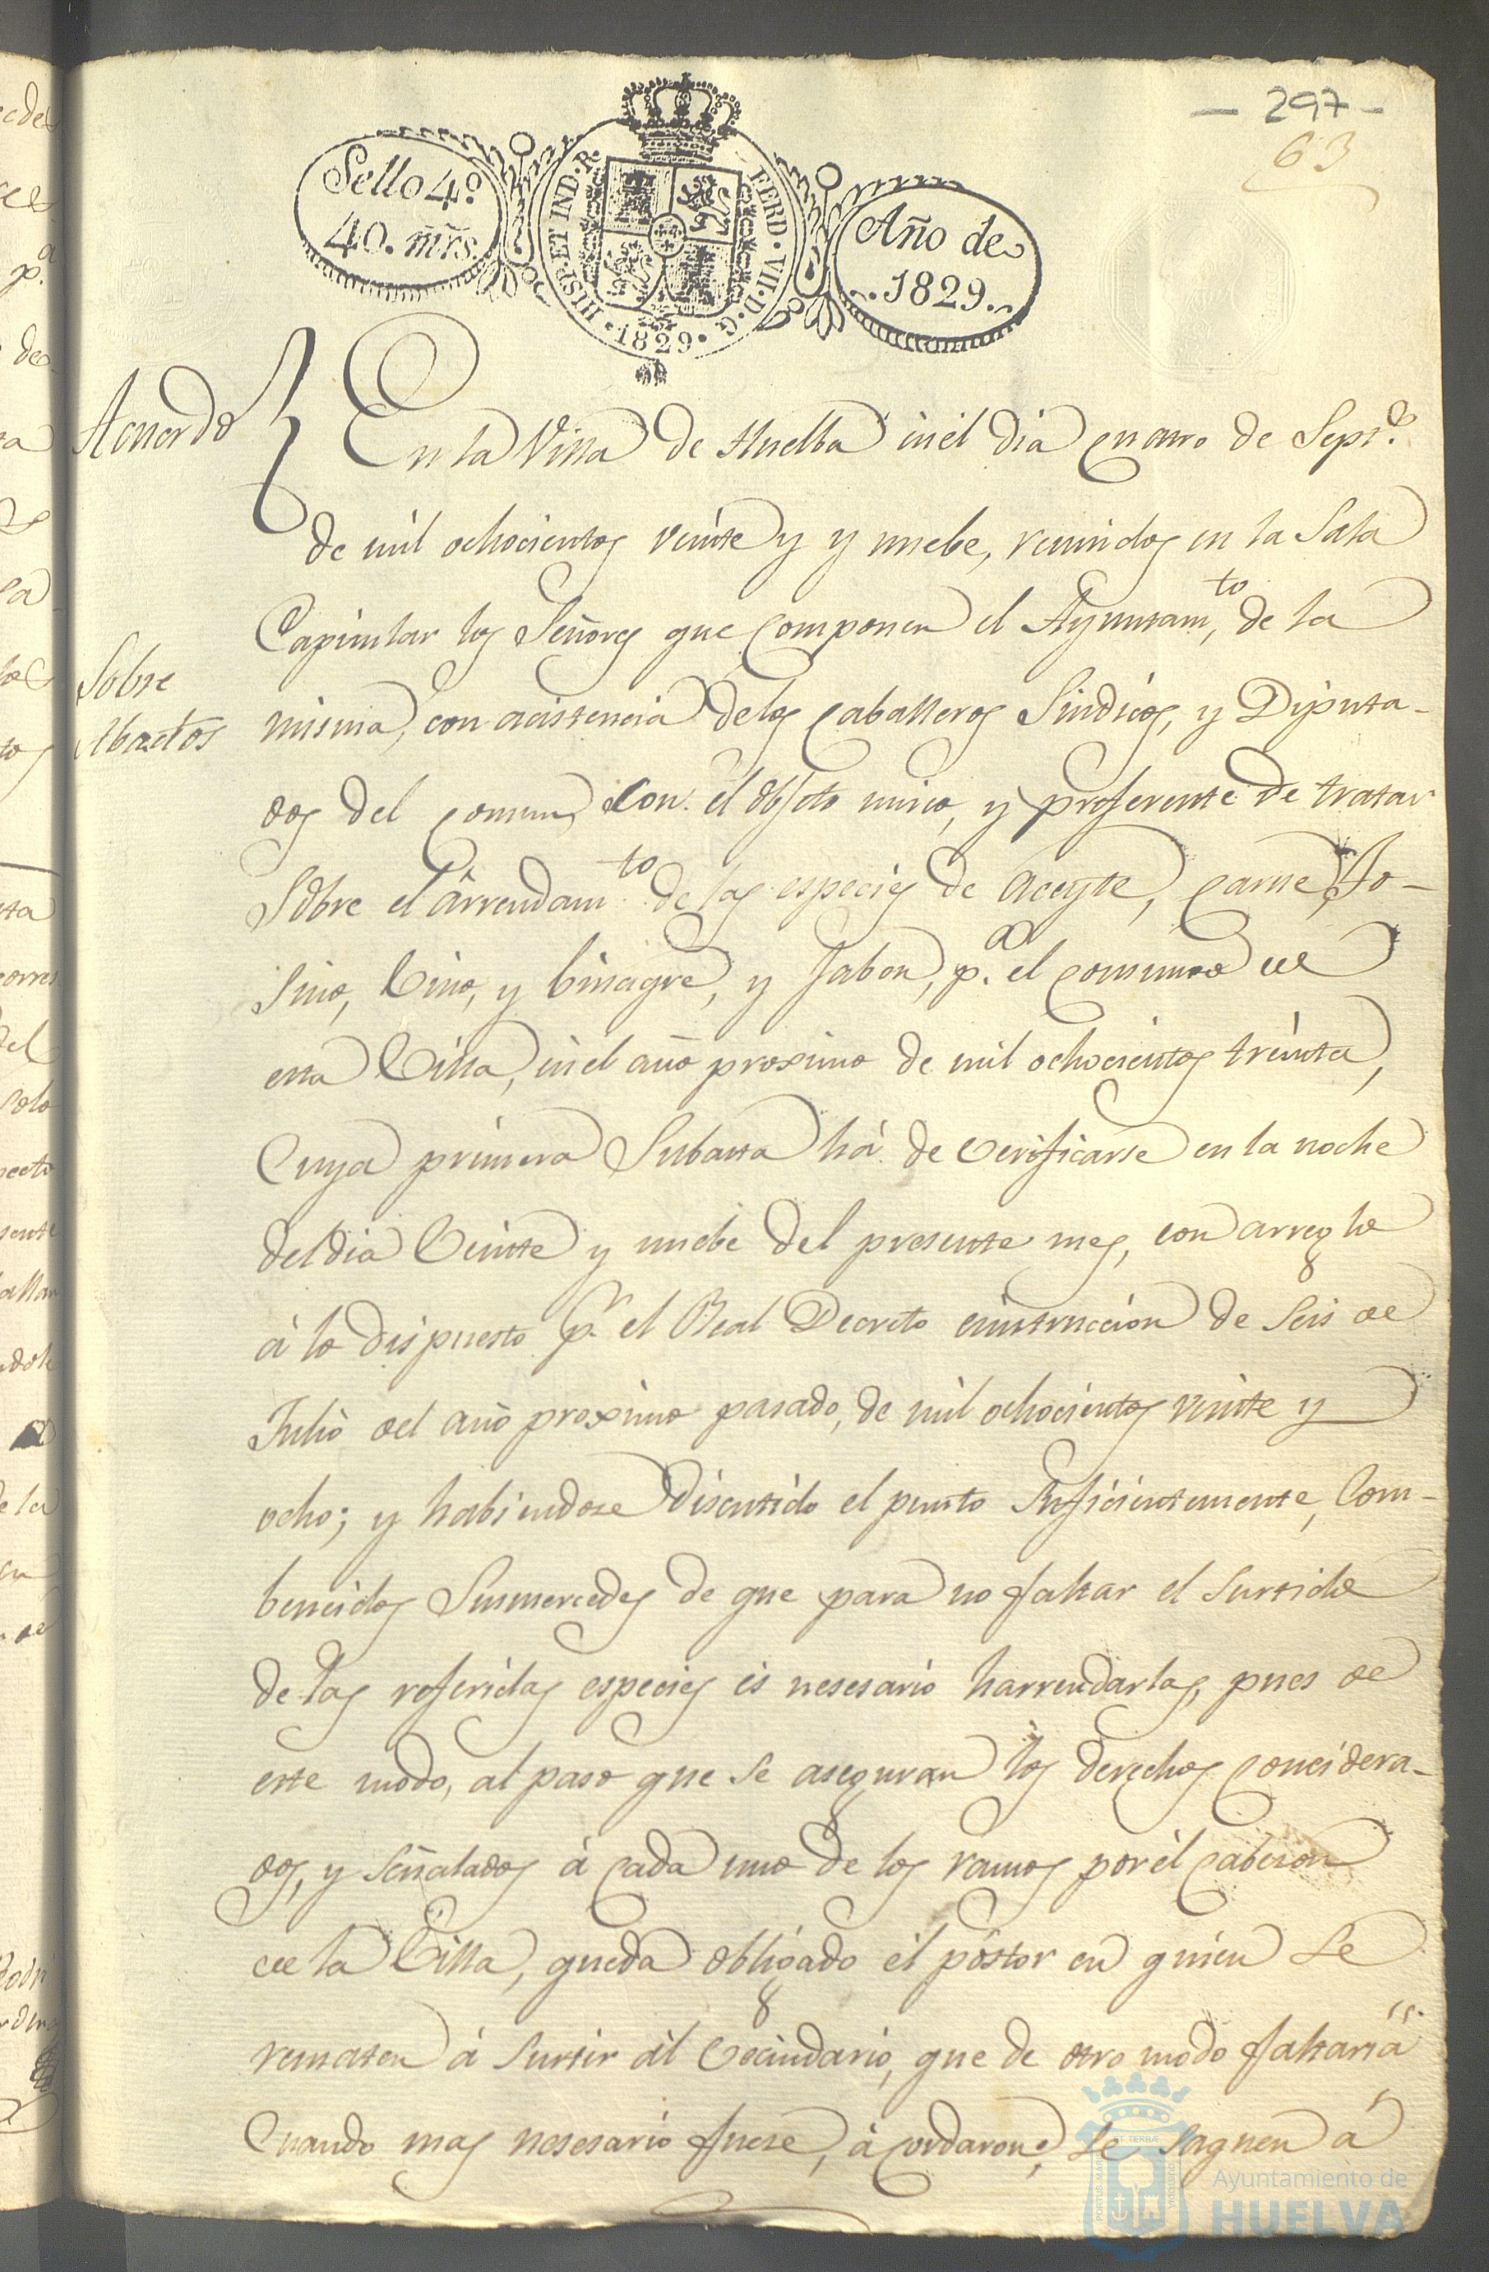 - 297 -
63
Sello 4º
40. mrs.
HISP. ET IND. R.
FERD. VII. D. G.
· 1829 ·
Año de
1829.
Acuerdo
En la Villa de Huelba en el dia cuatro de Sepre.
de mil ochocientos veinte y y nuebe, reunidos en la Sala
Capitular los Señores que componen el Ayuntamto, de la
Sobre
Abastos
misma, con acistencia de los Caballeros Sindicos, y Diputa-
dos del comun, con el objeto unico, y preferente de tratar
Sobre el arrendamto de las especies de Aceyte, Carne, To-
sino, Vino, y binagre, y Jabon, pa. el consumo de
esta Villa, en el año proximo de mil ochocientos treinta,
Cuya primera Subasta há de verificarse en la noche
del dia Veinte y nuebe del presente mes, con arreglo
á lo dispuesto pr. el Real Decreto einstruccion de Seis de
Julio del año proximo pasado, de mil ochocientos veinte y
ocho; y habiendose discutido el punto Suficientemente, Com-
bencidos Susmercedes de que para no faltar el Surtido
de las referidas especies es nesesario harrendarlas, pues de
este modo, al paso que se aseguran los derechos concidera-
dos, y señalados á cada uno de los ramos por el cabeson
de la Villa, queda obligado el postor en quien se
rematen á Surtir al Vecindario, que de otro modo faltaria
Cuando mas nesesario fuese, acordaron, Se Saquen á
Ayuntamiento de
HUELVA